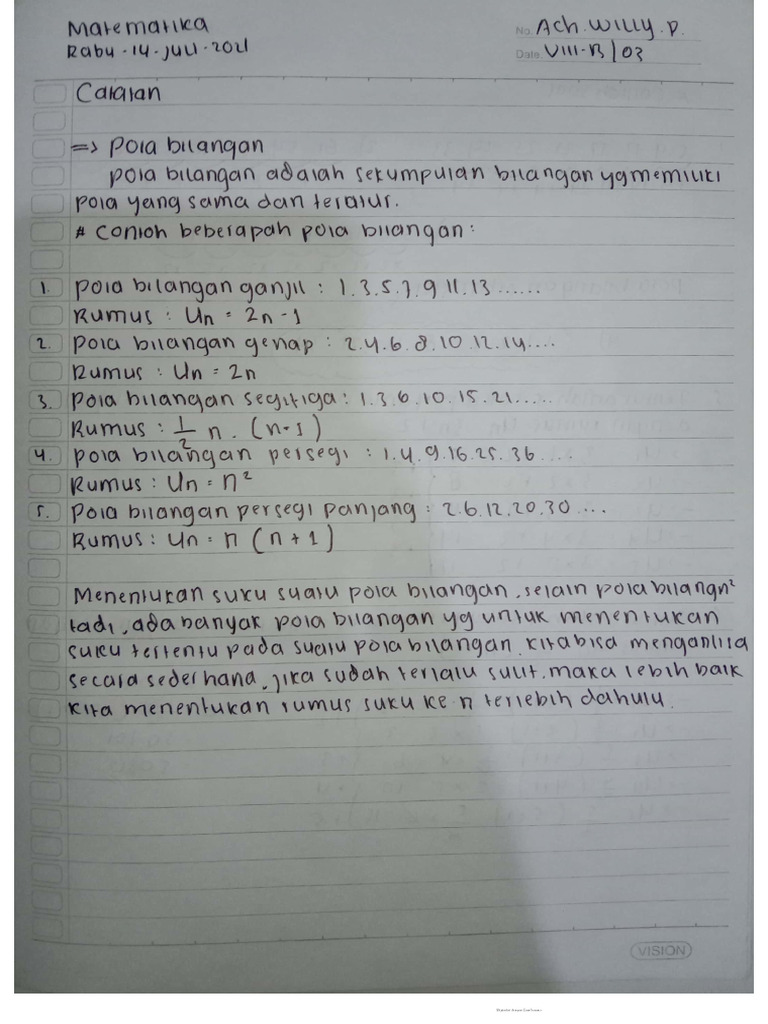 Matematika
Rabu - 14 - Juli - 2021
No. Ach. Willy. P.
Date. VIII-B/03
Catatan
=> Pola bilangan
pola bilangan adalah sekumpulan bilangan yg memiliki
pola yang sama dan teratur.
# Contoh beberapah pola bilangan :
1. pola bilangan ganjil : 1.3.5.7.9 11.13 ......
Rumus : Un = 2n-1
2. pola bilangan genap : 2.4.6.8.10.12.14....
Rumus : Un = 2n
3. pola bilangan segitiga : 1.3.6.10.15.21.....
Rumus : 1/2 n . (n-1)
4. pola bilangan persegi : 1.4.9.16.25.36....
Rumus : Un = n²
5. pola bilangan persegi panjang : 2.6.12.20.30....
Rumus : Un = n (n+1)
Menentukan suku suatu pola bilangan, selain pola bilangn²
tadi, ada banyak pola bilangan yg untuk menentukan
suku tertentu pada suatu pola bilangan, kita bisa menganlisa
secara sederhana, jika sudah terlalu sulit. maka lebih baik
kita menentukan rumus suku ke n terlebih dahulu.
VISION